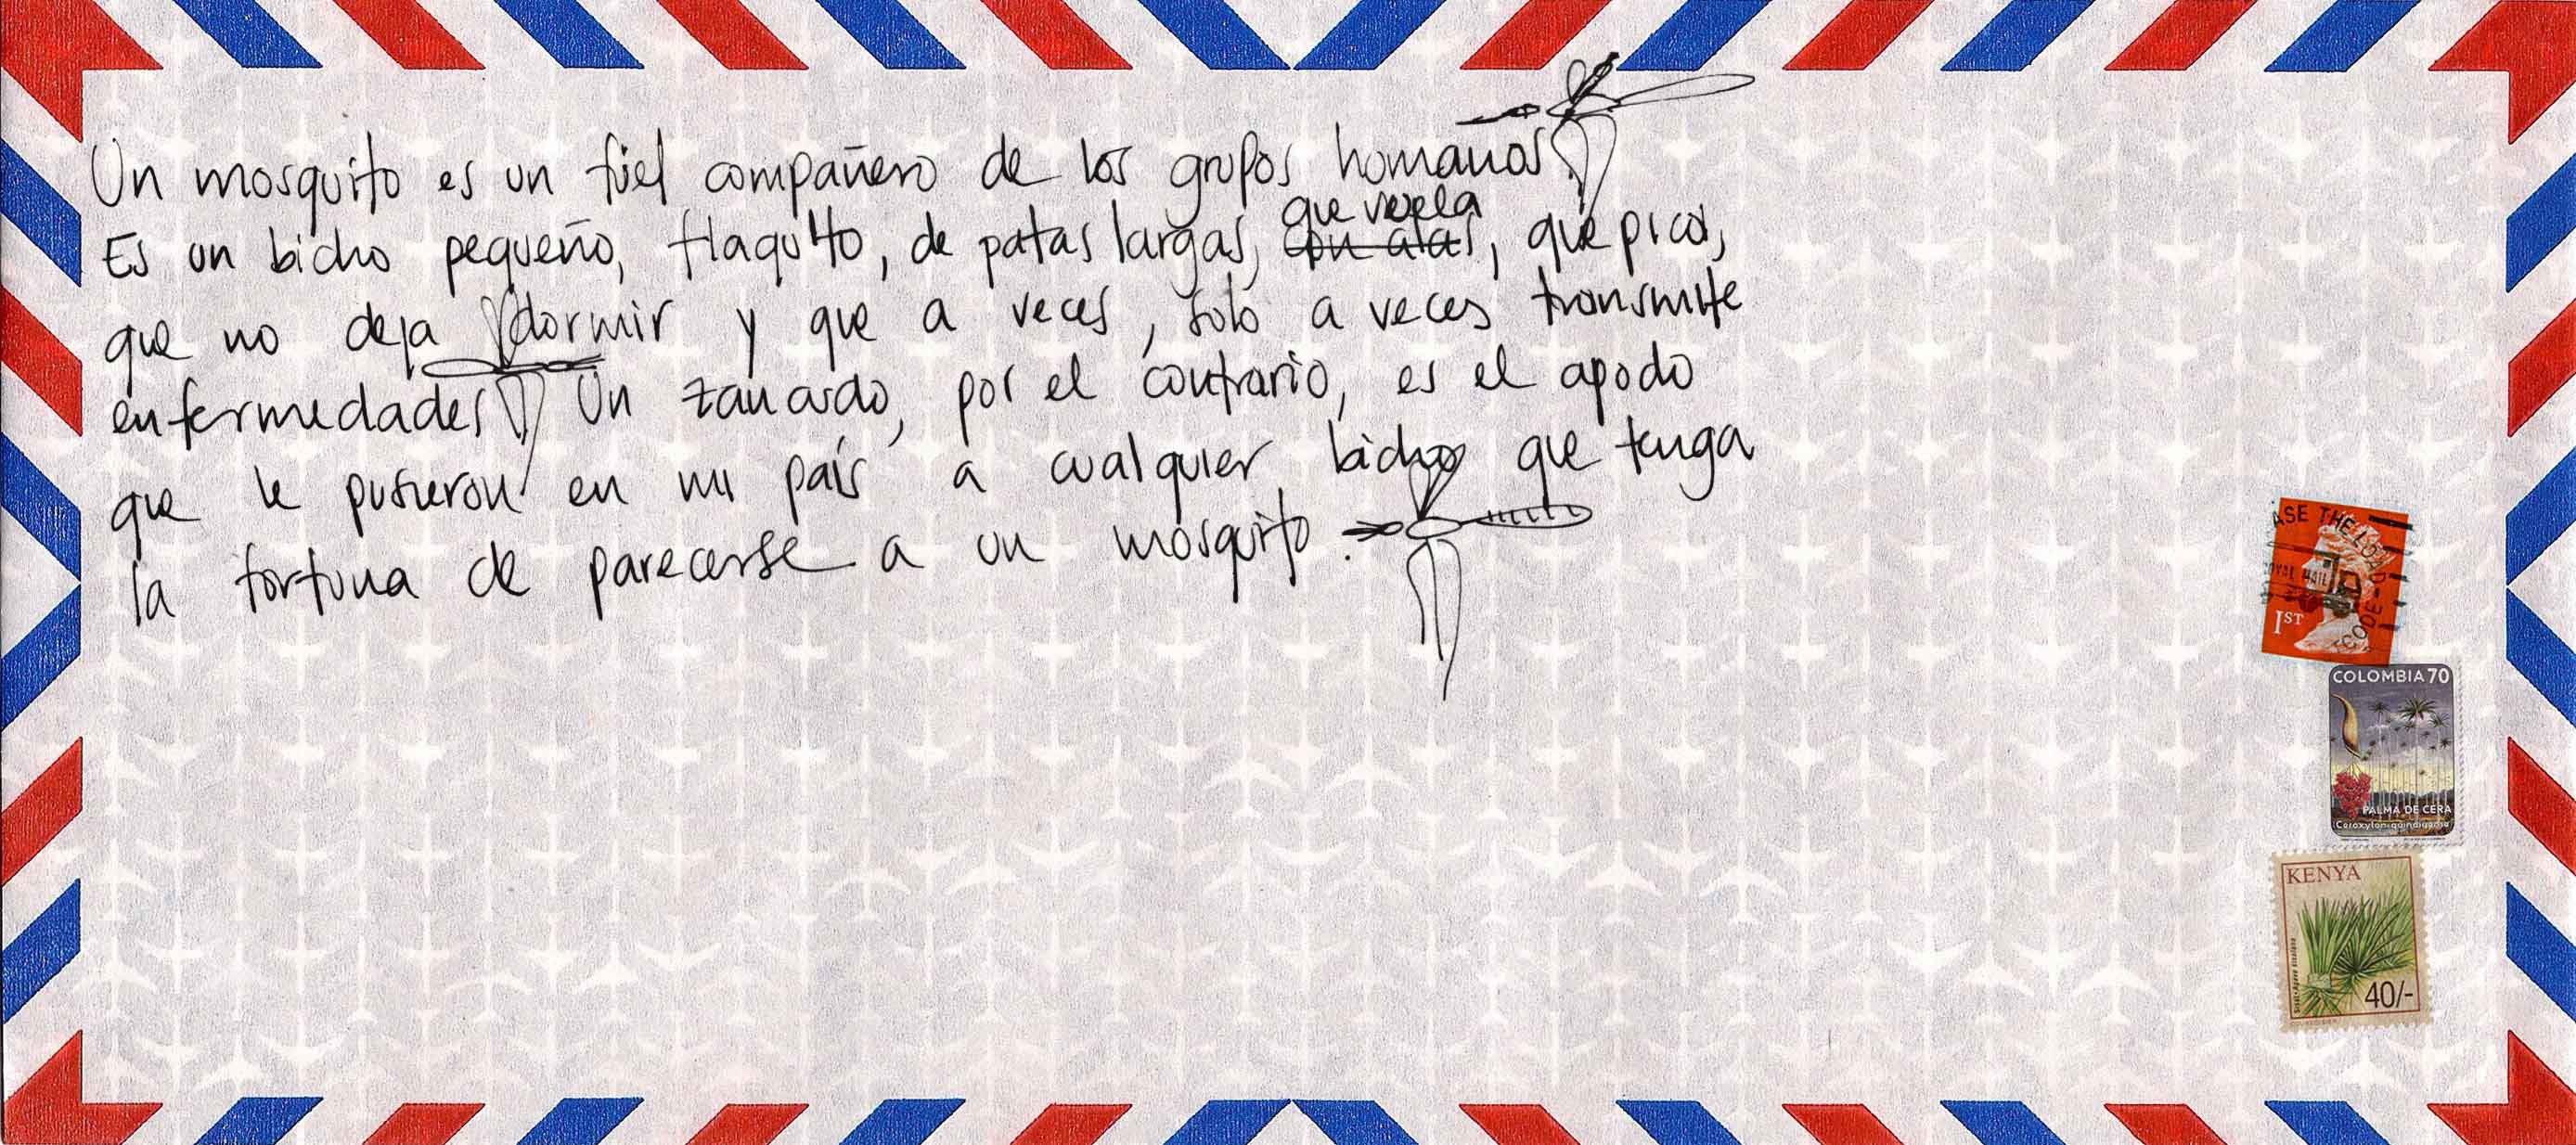 Un mosquito es un fiel compañero de los grupos homanos.
Es un bicho pequeño, flaquito, de patas largas, que vuela, que pica,
que no deja dormir y que a veces, solo a veces transmite
enfermedades. Un zancudo, por el contrario, es el apodo
que le pusieron en mi país a cualquier bicho que tenga
la fortuna de parecerse a un mosquito.
ROYAL MAIL
1ST
COLOMBIA 70
PALMA DE CERA
Ceroxylon quindiuense
KENYA
40/-